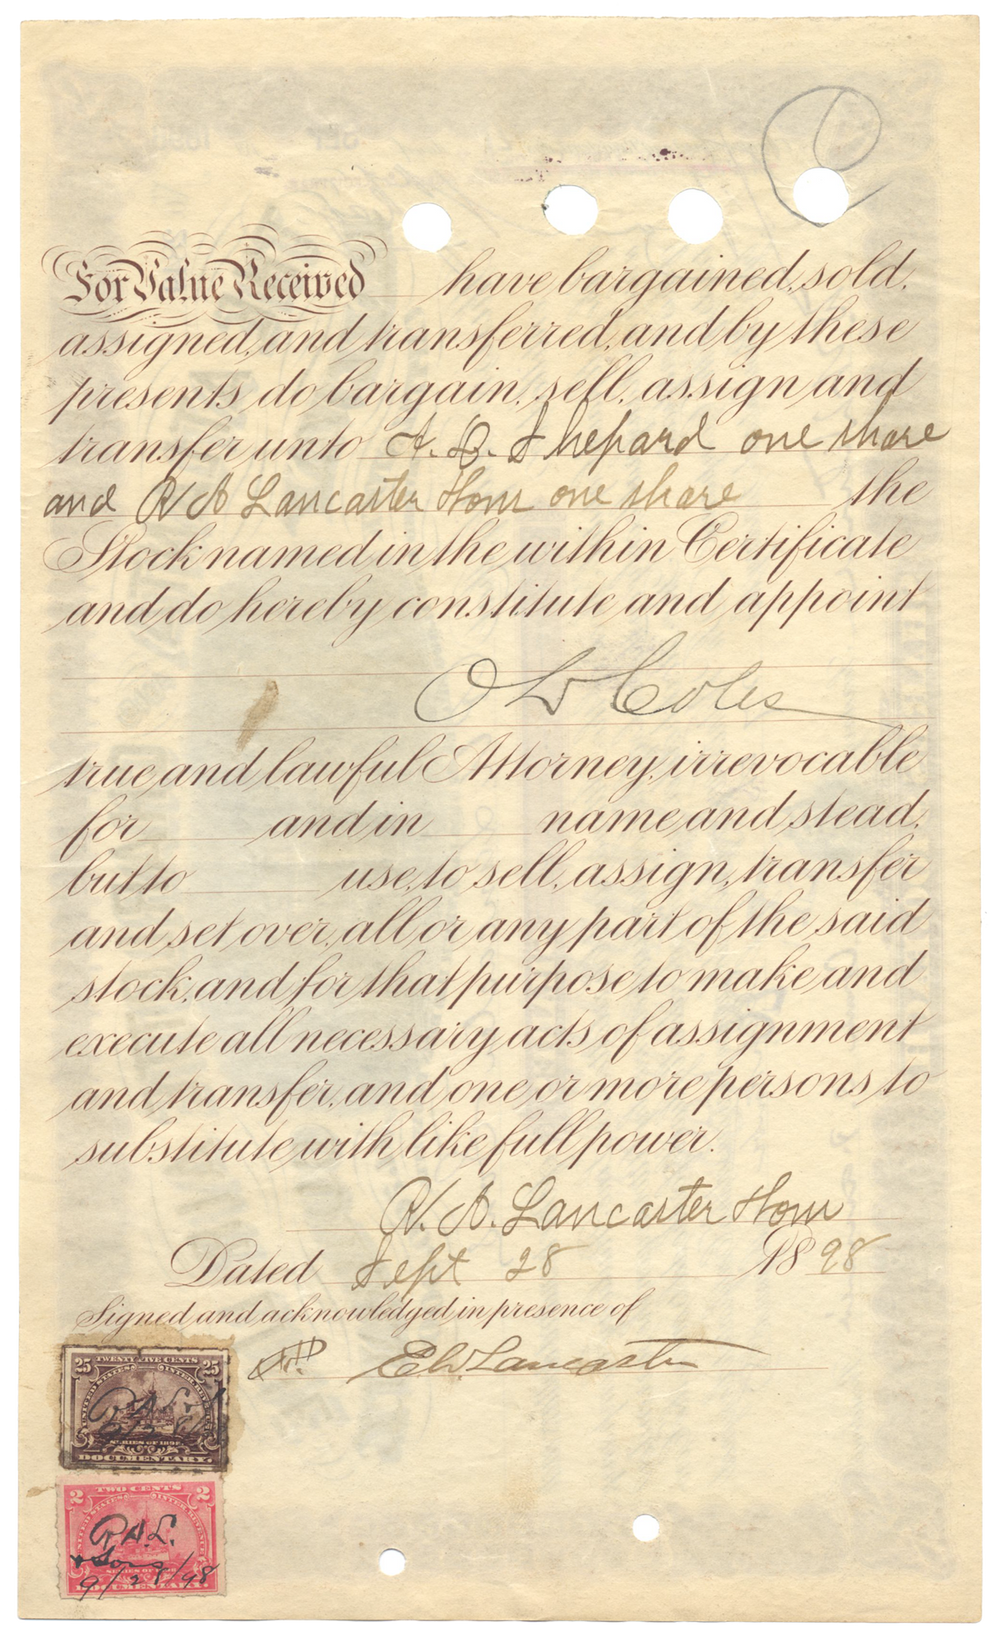 For Value Received have bargained, sold,
assigned, and transferred, and by these
presents do bargain, sell, assign and
transfer unto A. B. Shepard one share
and R A Lancaster & Son one share the
Stock named in the within Certificate
and do hereby constitute and appoint
Coles
true and lawful Attorney, irrevocable
for and in name and stead,
but to use, to sell, assign, transfer
and set over, all or any part of the said
stock, and for that purpose to make and
execute all necessary acts of assignment
and transfer, and one or more persons to
substitute with like full power.
R. A. Lancaster & Son
Dated Sept 28 1898
Signed and acknowledged in presence of
Lancaster
25 TWENTY FIVE CENTS 25
UNITED STATES INTER. REVENUE
SERIES OF 1898
DOCUMENTARY
TWO CENTS
2 2
UNITED STATES INTER. REVENUE
R.A.L.
& Son
SERIES OF 1898
9/28/98
DOCUMENTARY